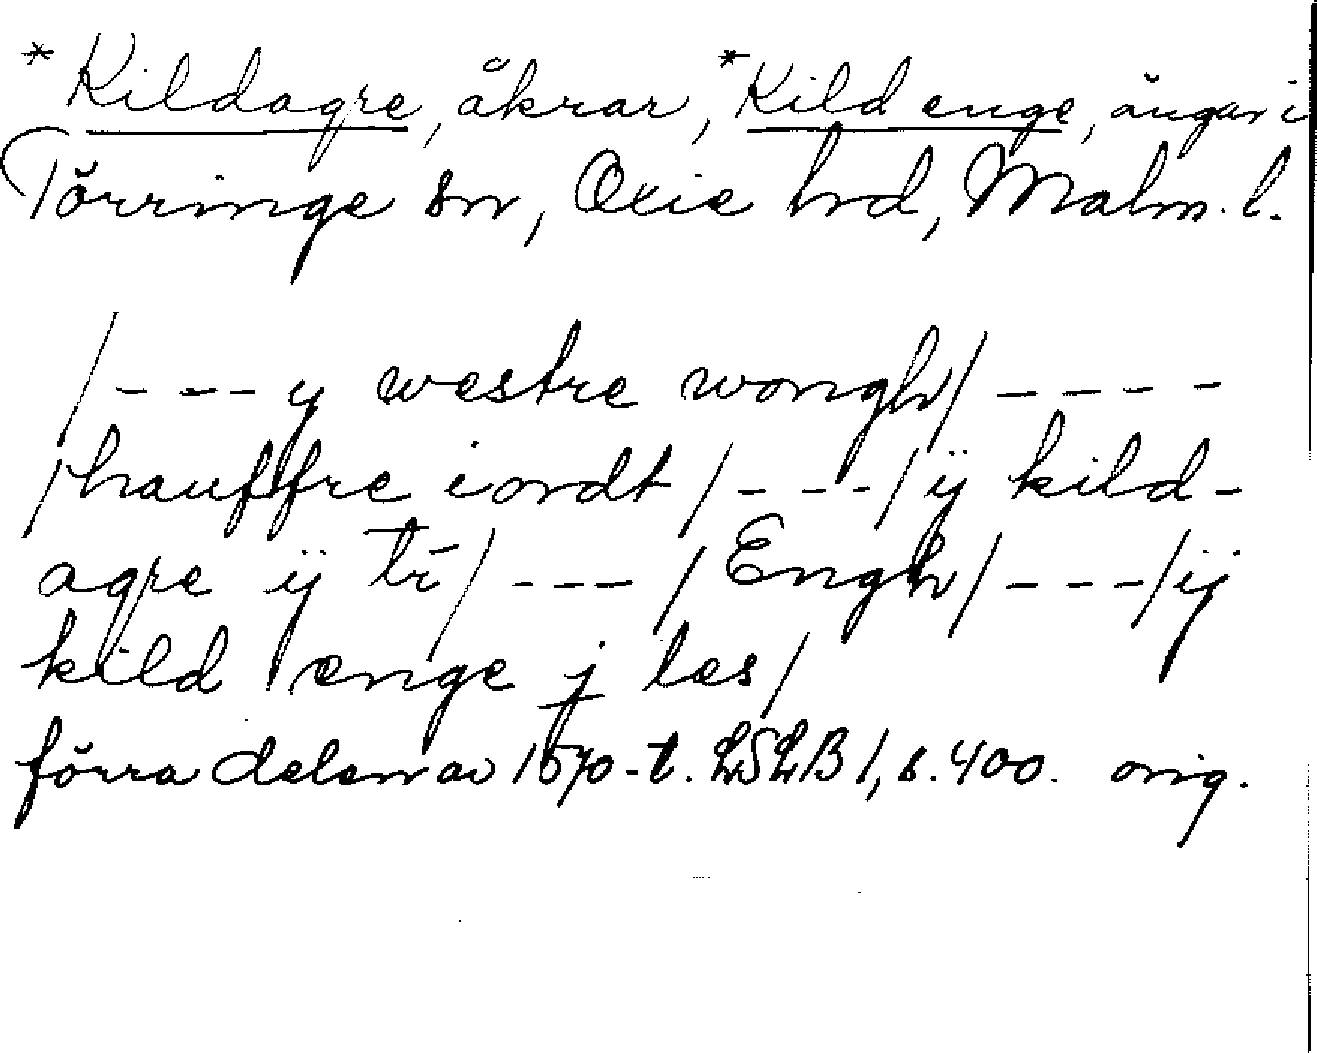 *Kildagre, åkrar, *Kild enge, ängar i
Törringe sn, Oxie hrd, Malm. l.
/---y westre wongh/----
/hauffre iordt/---/ÿ kild-
agre ÿ tr̄/---/Engh/---/ij
kild ænge j læs/
förra delen av 1570-t. LSLB 1, s. 400. orig.